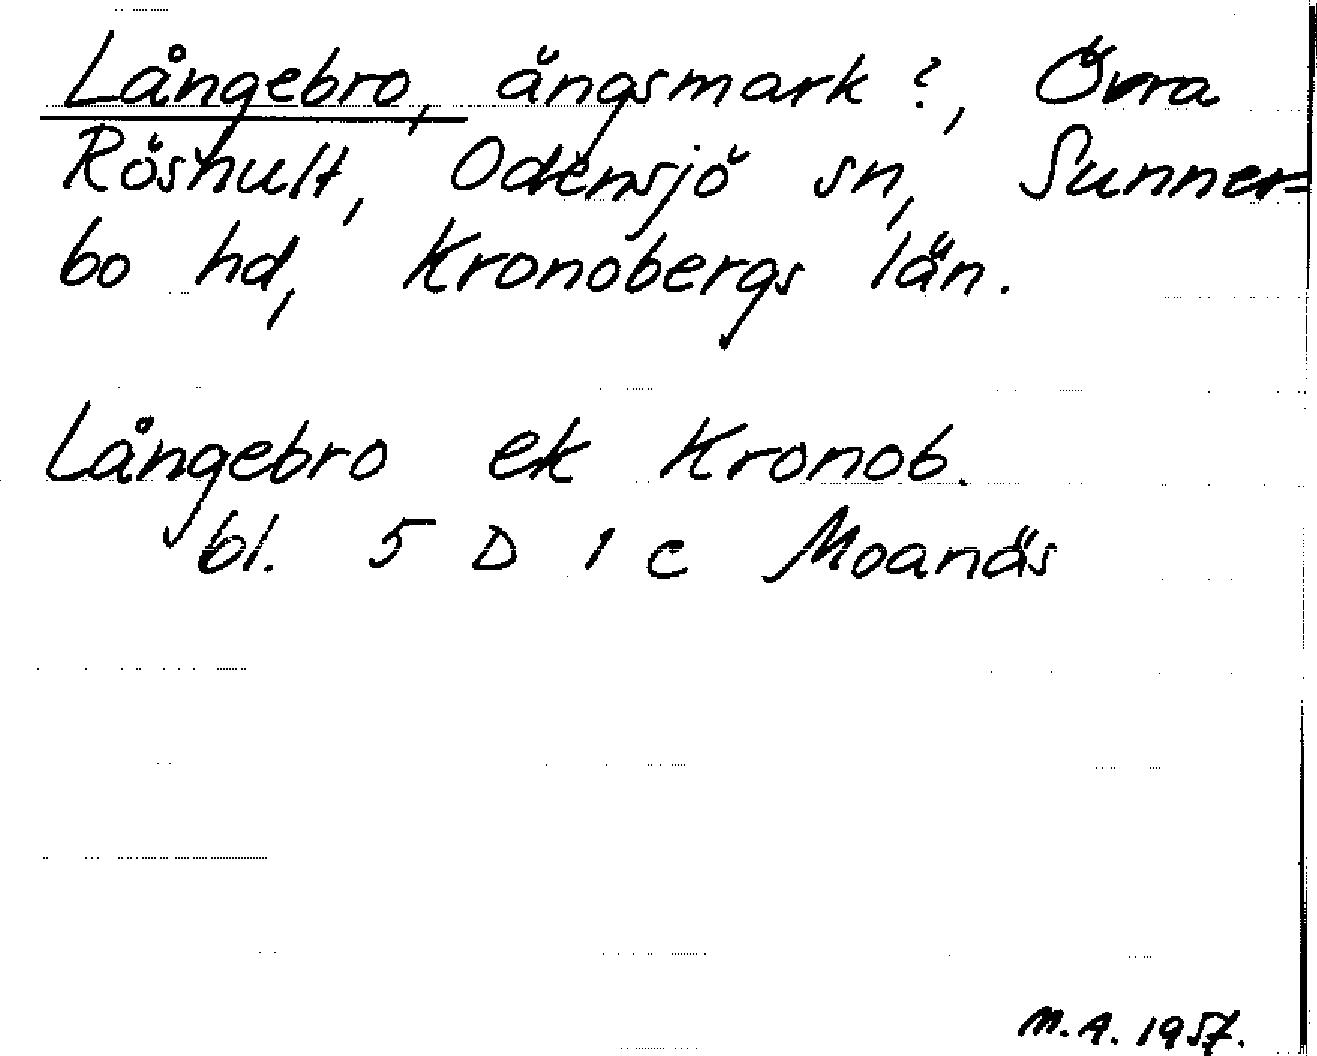 Långebro, ängsmark?, Övra
Röshult, Odensjö sn, Sunner=
bo hd, Kronobergs län.
Långebro ek Kronob.
bl. 5 D 1 c Moanäs
M.A. 1957.